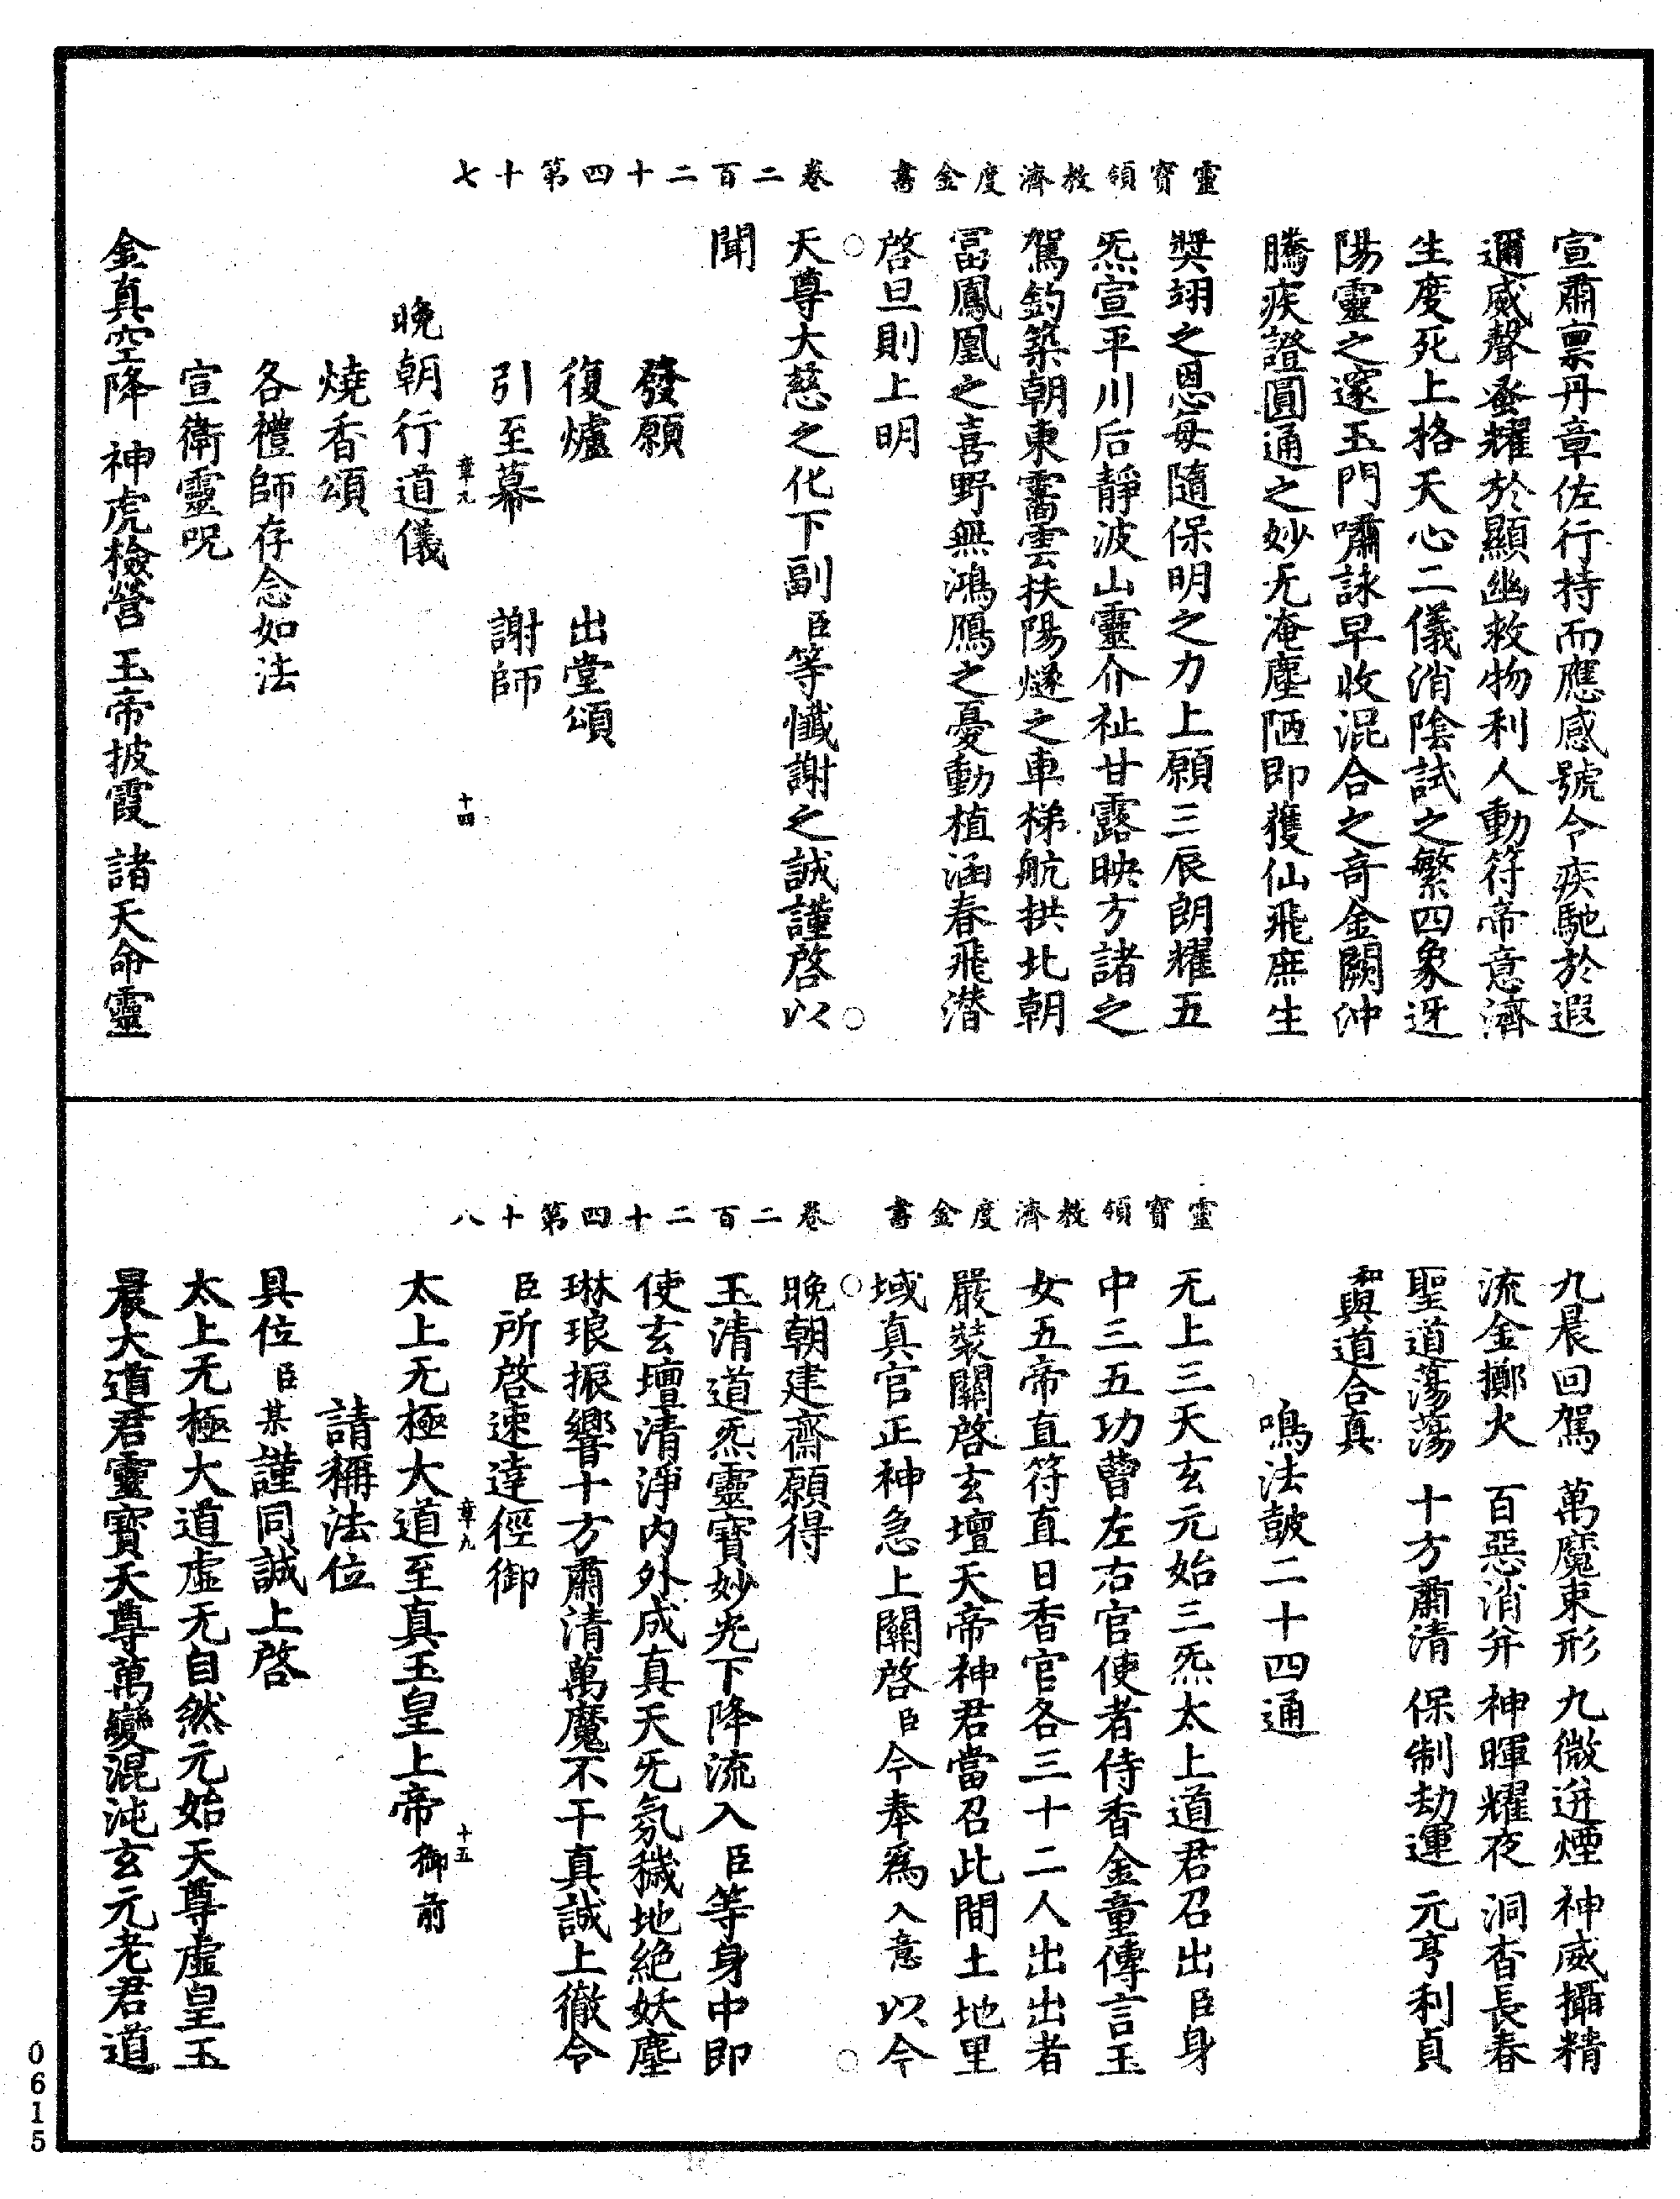 靈寶領教濟度金書 卷二百二十四第十七
宣肅禀丹章佐行持而應感號令疾馳於遐
邇威聲蚤耀於顯幽救物利人動符帝意濟
生度死上格天心二儀消陰試之繁四象迓
陽靈之邃玉門嘯詠早收混合之奇金闕沖
騰疾證圓通之妙无淹塵陋即獲仙飛庶生
獎翊之恩毎隨保明之力上願三辰朗耀五
炁宣平川后靜波山靈介祉甘露映方諸之
駕釣築朝東霱雲扶陽燧之車梯航拱北朝
冨鳳凰之喜野無鴻鴈之憂動植涵春飛潛
啓旦則上明
天尊大慈之化下副臣等懺謝之誠謹啓以
聞
發願
復爐 出堂頌
引至幕 謝師
章九 十四
晚朝行道儀
燒香頌
各禮師存念如法
宣衛靈呪
金真空降 神虎檢營 玉帝披霞 諸天命靈
靈寶領教濟度金書 卷二百二十四第十八
九晨回駕 萬魔束形 九微迸煙 神威攝精
流金擲火 百惡消并 神暉耀夜 洞杳長春
聖道蕩蕩 十方肅清 保制劫運 元亨利貞
和與道合真
鳴法鼓二十四通
无上三天玄元始三炁太上道君召出臣身
中三五功曹左右官使者侍香金童傳言玉
女五帝直符直日香官各三十二人出出者
嚴裝關啓玄壇天帝神君當召此間土地里
域真官正神急上關啓臣今奉爲入意以今
晚朝建齋願得
玉清道炁靈寶妙光下降流入臣等身中即
使玄壇清淨內外成真天旡氛穢地絕妖塵
琳琅振響十方肅清萬魔不干真誠上徹令
臣所啓速達徑御
章九 十五
太上无極大道至真玉皇上帝御前
請稱法位
具位臣某謹同誠上啓
太上无極大道虛无自然元始天尊虛皇玉
晨大道君靈寶天尊萬變混沌玄元老君道
0615